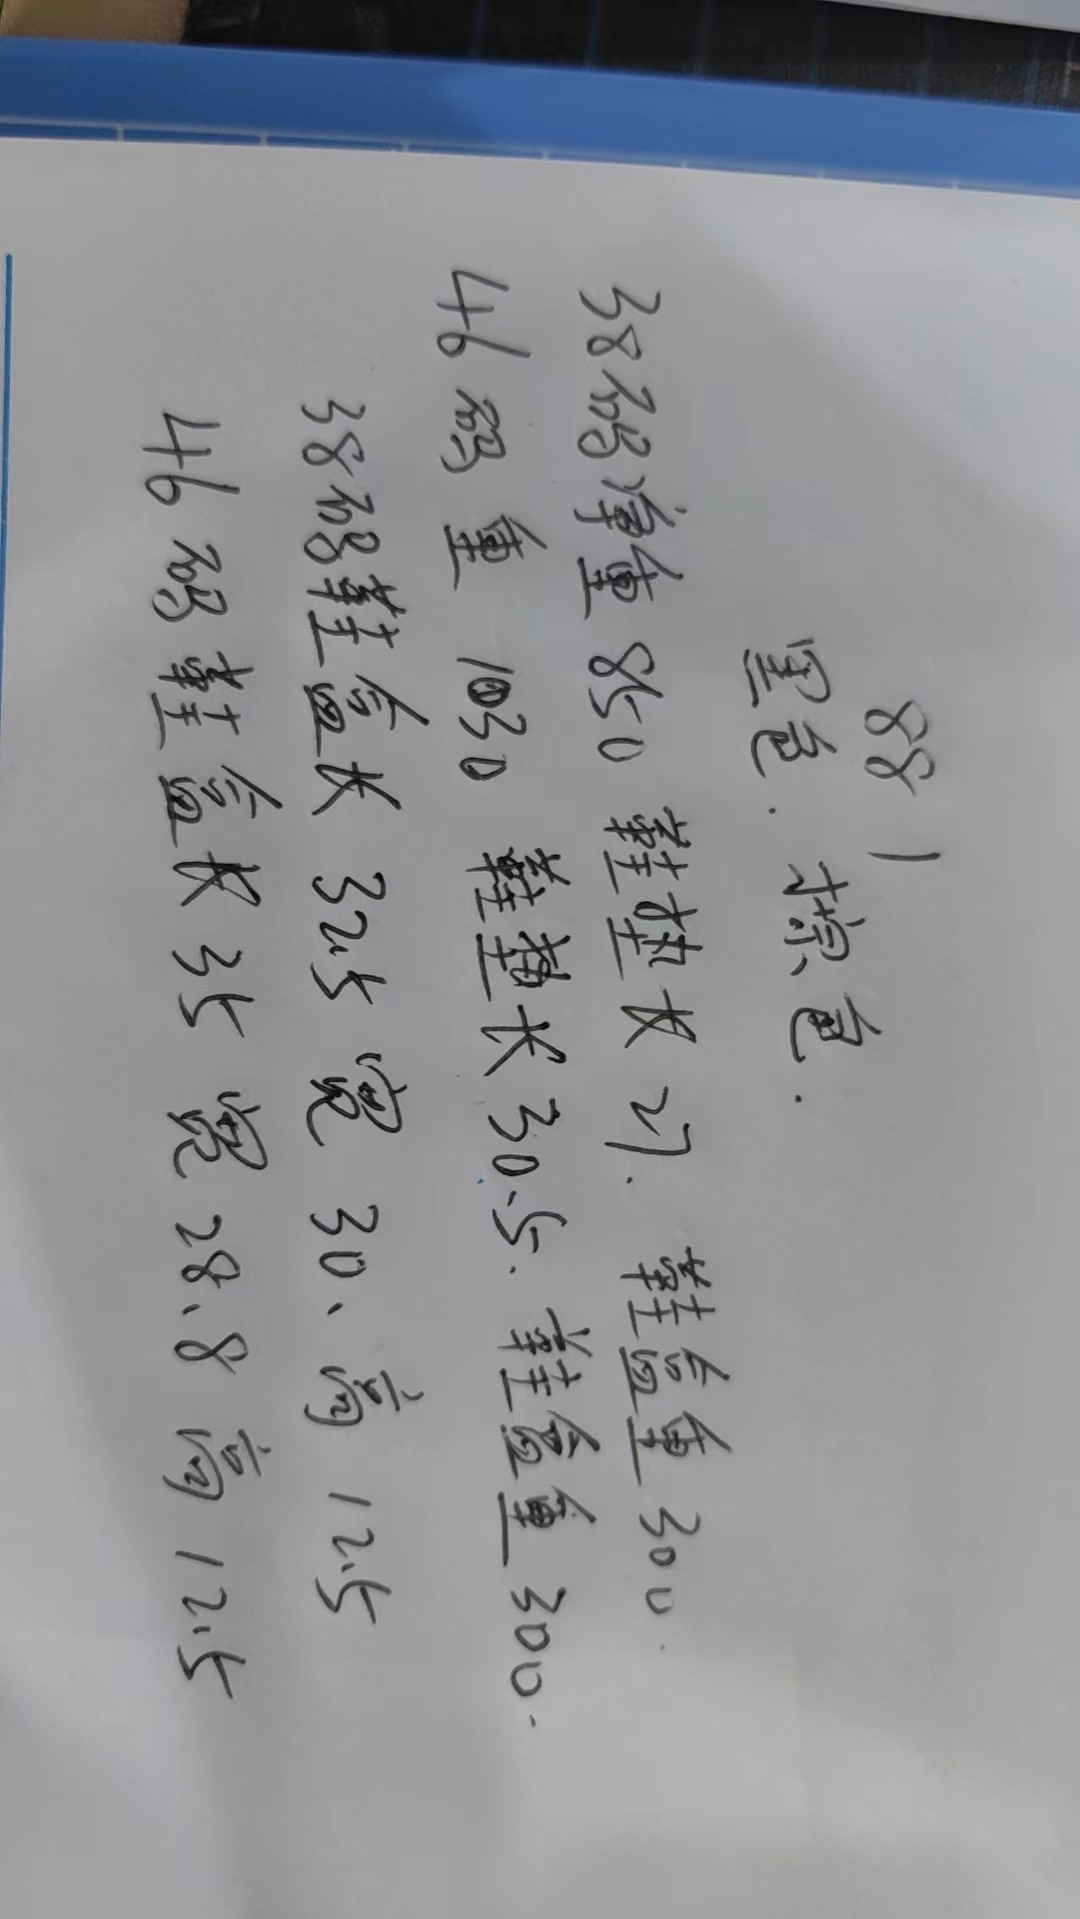 88 1
黑色.棕色.
38码净重850 鞋垫长27. 鞋盒重300.
46码重 1030 鞋垫长30.5. 鞋盒重300.
38码鞋盒长 32.5 宽 30、高 12.5
46码鞋盒长 35 宽 28.8 高 12.5